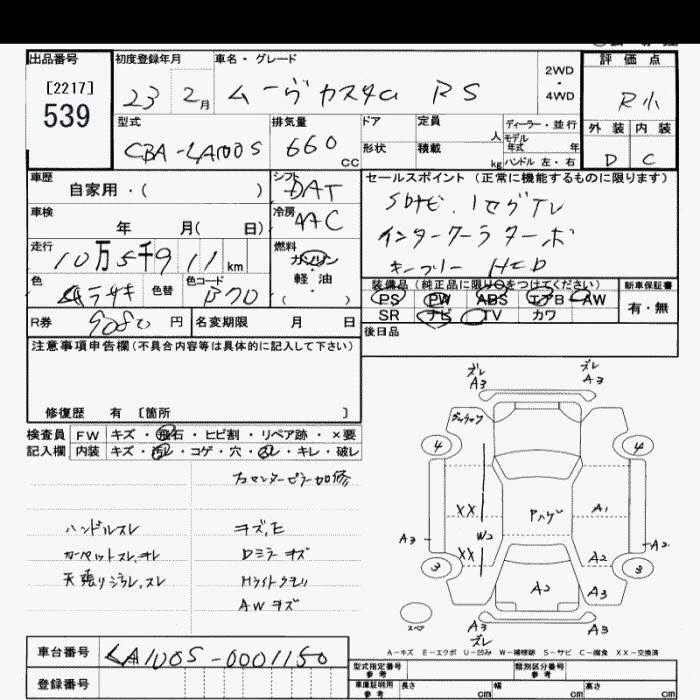 出品番号
[2217]
539
初度登録年月
23 2月
車名・グレード
ムーヴ カスタム RS
2WD
4WD
評価点
R小
外装 内装
D C
型式
CBA-LA100S
排気量
660 cc
ドア
形状
定員 人
積載 kg
ディーラー・並行
モデル年式 年
ハンドル 左・右
車歴
自家用・( )
シフト
DAT
セールスポイント (正常に機能するものに限ります)
SDナビ、1セグTV
インタークーラターボ
キーフリー HID
車検
年 月( 日)
冷房
AAC
走行
10万5千911km
燃料
ガソリン・
軽・油
( )
色
ムラサキ
色替
色コード
B70
装備品(純正品に限り○をつけてください)
PS PW ABS エアB AW
SR ナビ TV カワ
新車保証書
有・無
R券 9080円
名変期限 月 日
後日品
注意事項申告欄(不具合内容等は具体的に記入して下さい)
修復歴 有 〔箇所 〕
検査員
記入欄
FW キズ・飛石・ヒビ割・リペア跡・×要
内装 キズ・汚レ・コゲ・穴・スレ・キレ・破レ
右センターピラー加修
ハンドルスレ キズ,E
カーペットスレ,ヨレ Dミラーキズ
天張りシラレ,スレ Hライトクモリ
AWキズ
ズレ
A3
ズレ
A3
4
4
XX
アハゲ
A1
A3
W2
A2
XX
A2
3
3
A2
A3
スペア
A3
ズレ
A3
A-キズ E-エクボ U-凹み W-補修跡 S-サビ C-腐食 XX-交換済
車台番号
LA100S-0001150
登録番号
型式指定番号
参考
類別区分番号
参考
車庫証明用
参考
長さ cm
幅 cm
高さ cm